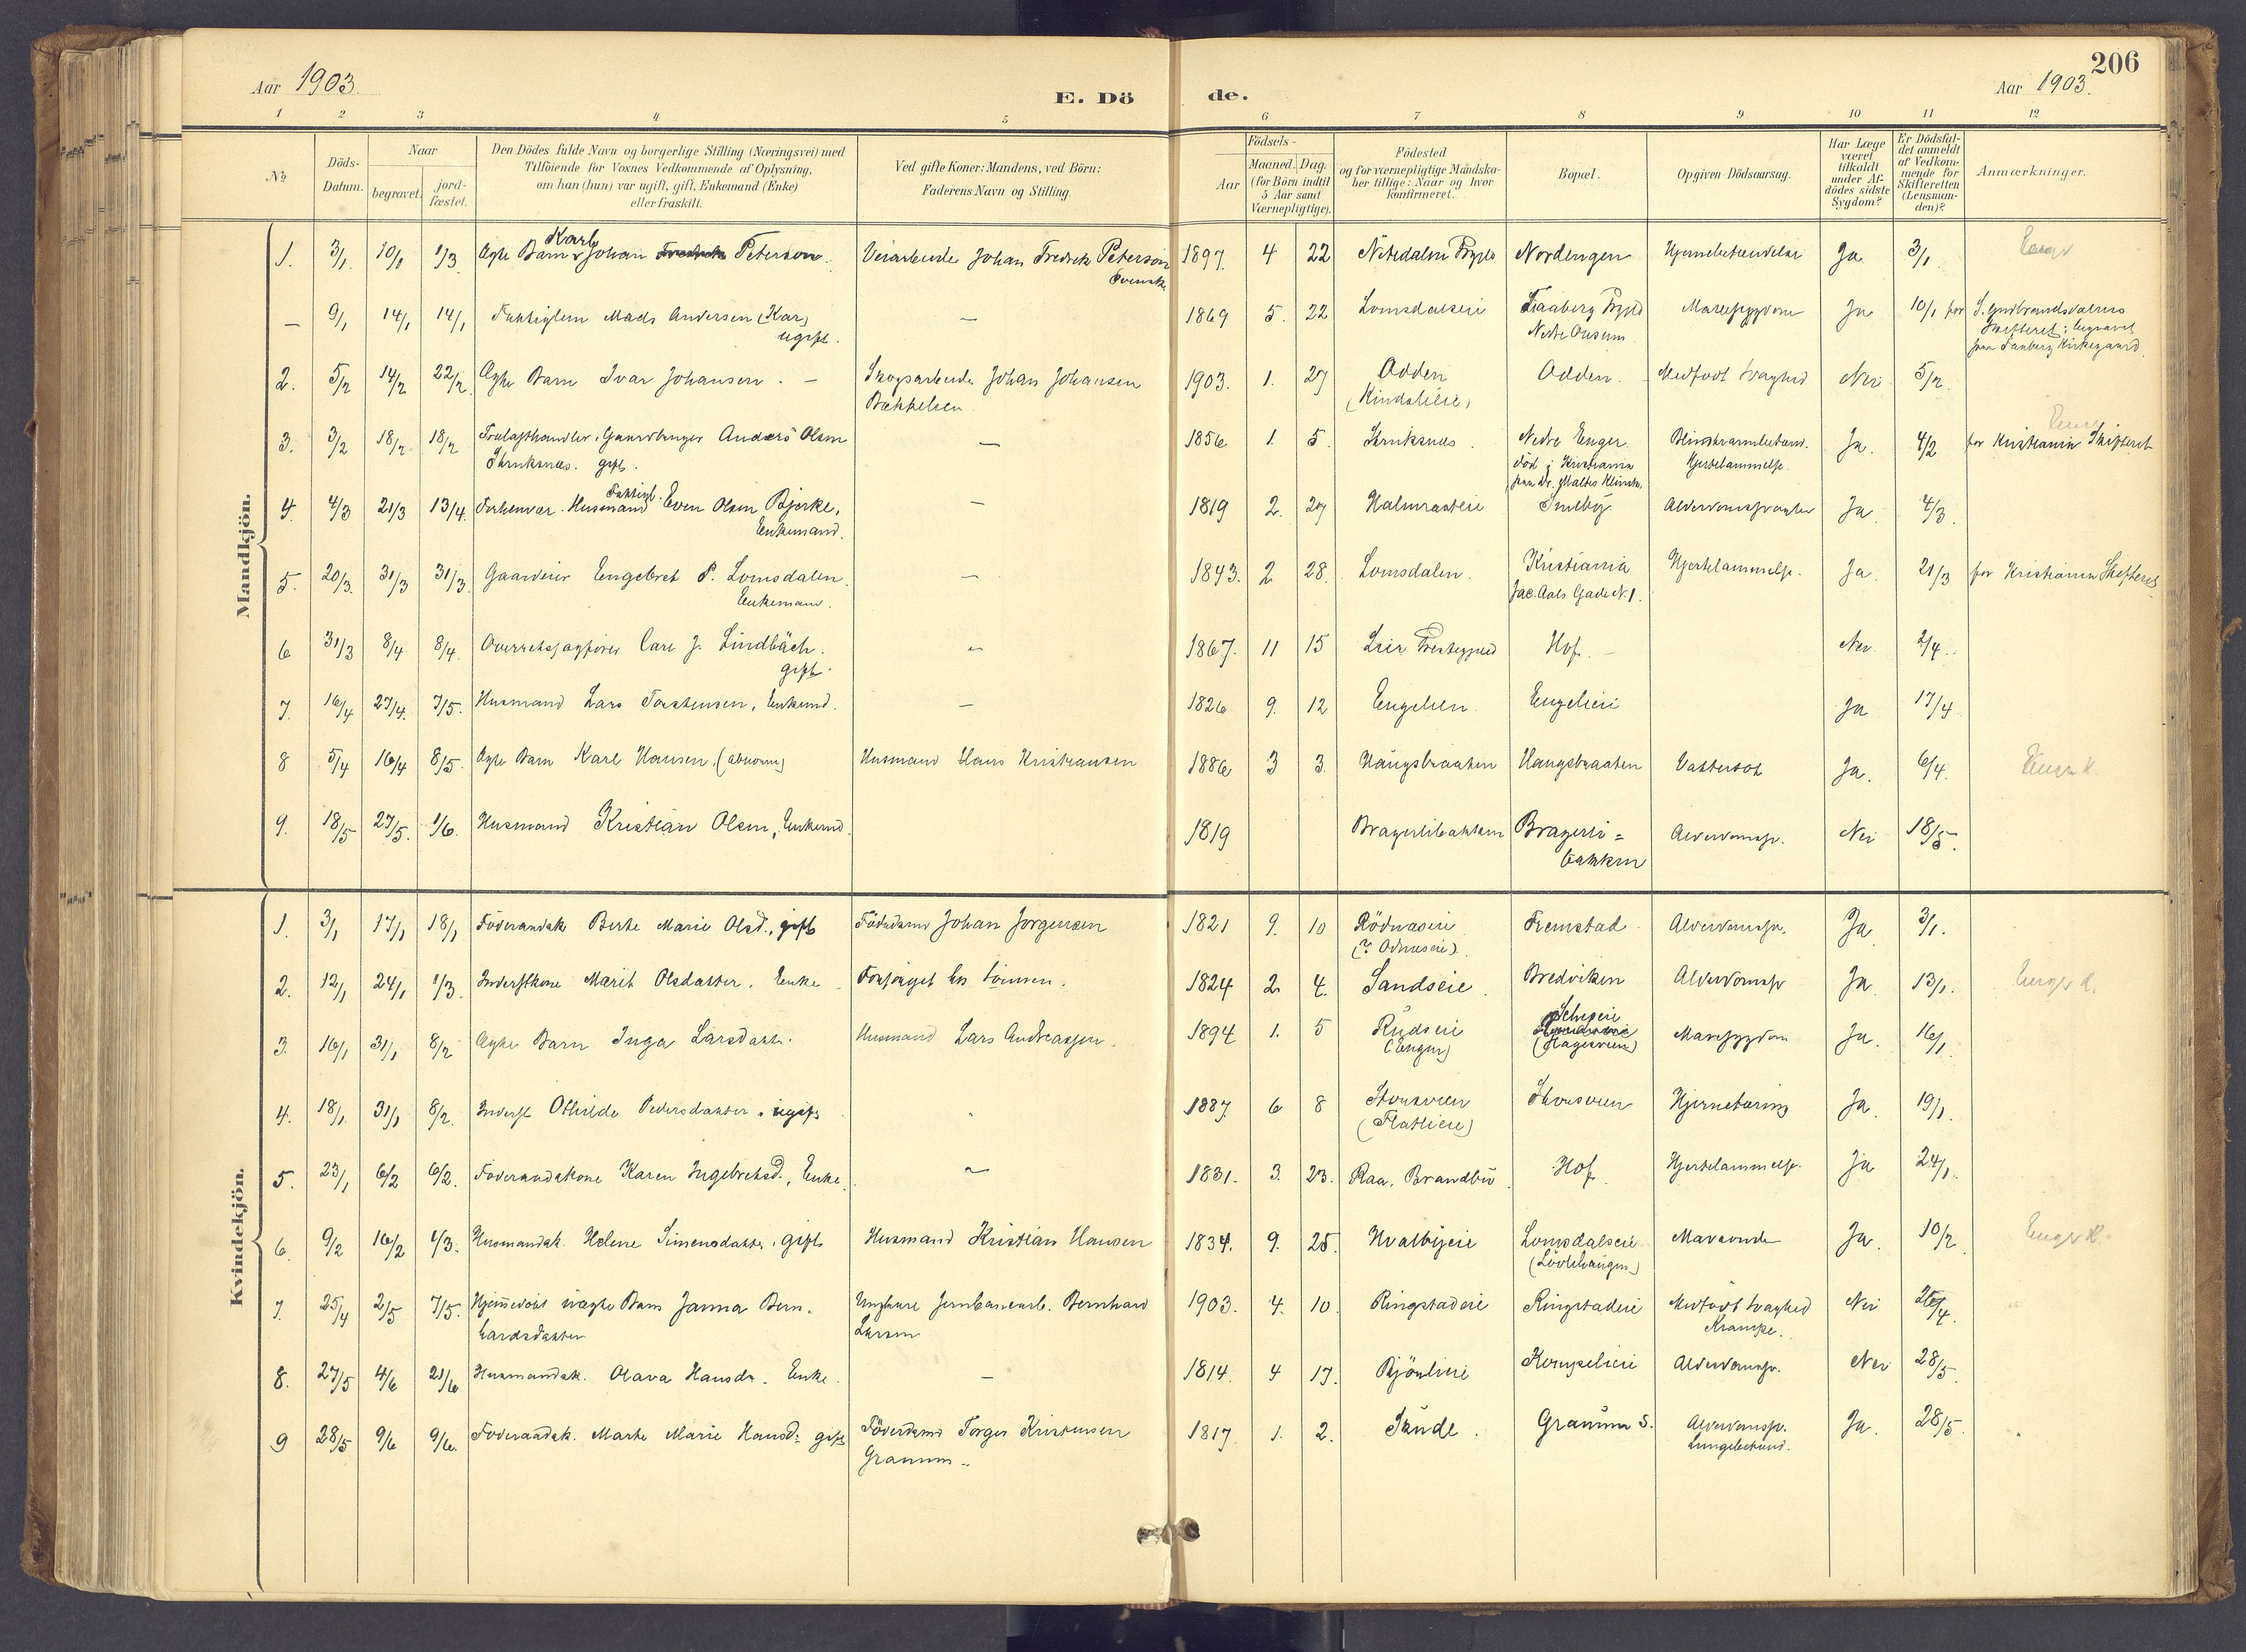 206
Aar 1903.
E. Dö
de.
Aar 1903.
1 2 3 4 5 6 7 8 9 10 11 12
No
Döds-
Datum.
Naar
begravet.
jord-
fæstet.
Den Dödes fulde Navn og borgerlige Stilling (Næringsvei) med
Tilföiende for Voxnes Vedkommende af Oplysning,
om han (hun) var ugift, gift, Enkemand (Enke)
eller fraskilt.
Ved gifte Koner: Mandens, ved Börn:
Faderens Navn og Stilling.
Födsels-
Aar
Maaned. Dag.
(for Börn indtil
5 Aar samt
Værnepligtige).
Födested
og for værnepligtige Mandska-
ber tillige: Naar og hvor
konfirmeret.
Bopæl.
Opgiven Dödsaarsag.
Har Læge
været
tilkaldt
under Af-
dödes sidste
Sygdom?
Er Dödsfal-
det anmeldt
af Vedkom-
mende for
Skifteretten
(Lensman-
den)?
Anmærkninger.
Mandkjön.
Karl
1. 3/1 10/1 1/3 Ægte Barn Johan Fredrik Peterson. Veiarbeide Johan Fredrik Peterson 1897 4 22 Nitedalen Nordengen Hjernebetændelse Ja 3/1
Svenske
— 9/1 14/1 14/1 Fattiglem Mads Andersen (Kar) — 1869 5. 22 Lomsdalseie Faaberg Mavesygdom Ja 10/1 for S. Gudbrandsdalens
ugift. Nedre Skifteret; begravet
paa Faaberg Kirkegaard.
2. 5/2 14/2 22/2 Ægte Barn Ivar Johansen. — Skogsarbeide Johan Johansen 1903. 1. 27 Odden Odden. Medfödt Svaghed Nei 5/2.
Bækkelien
3. 3/2 18/2 18/2 Trælasthandler, Gaardbruger Anders Olsen — 1856 1. 5. Nedre Enger Ja. 4/2 for Kristiania Skifteret
gift. död i Kristiania Hjertelammelse.
paa Dr. Malthes Klinik.
Fattigl.
4. 4/3 21/3 13/4. Forhenvær. Husmand Even Olsen Bjerke, — 1819 2. 27 Smeby Alderdomssvaghed Ja. 4/3.
Enkemand.
5. 20/3. 31/3 31/3 Gaardeier Engebret P. Lomsdalen. — 1843. 2 28. Lomsdalen. Kristiania Hjertelammelse. Ja. 21/3 for Kristiania Skifteret
Enkemand. Jac. Aals Gade N. 1.
6 31/3 8/4 8/4. Overretssagfører Carl J. Lindbäch. — 1867. 11 15 Lier Præstegjeld Hof. — Nei. 2/4.
gift.
7. 16/4 27/4. 7/5. Husmand Lars Torstensen, Enkemd. — 1826 9. 12 Engelien Engelieie Ja 17/4
8 5/4 16/4 8/5. Ægte Barn Karl Hansen, (abnorm) Husmand Hans Kristiansen 1886 3 3. Haugsbraaten Haugsbraaten Vattersot Ja. 6/4. Enger K.
9. 18/5 27/5. 1/6. Husmand Kristian Olsen, Enkemd. 1819 Bragerlibakken Bragerli= Alderdomssv. Nei 18/5.
bakken
Kvindekjön.
1. 3/1 17/1 18/1 Föderaadsk. Berte Marie Olsd., gift Föderdsmd Johan Jørgensen 1821 9. 10 Rödnæseie Fremstad Alderdomssv. Ja 3/1.
(? Odnæseie).
2. 12/1 24/1 1/3. Inderstkone Marit Olsdatter. Enke Forsörget hos Sönnen. 1824 2 4. Sandseie. Bredviken Alderdomssv Ja 13/1. Enger K.
3. 16/1 31/1 8/2 Ægte Barn Inga Larsdatt. Husmand Lars Andreassen. 1894 1. 5 Rudseie Mavesygdom Ja. 16/1.
(Enger)
4. 18/1 31/1 8/2. Inderst Othilde Pedersdatter. ugift 1887 6 8 Storsveen Storsveen Hjernetæring Ja. 19/1.
(Flatlieie)
5. 23/1 6/2 6/2. Foderaadskone Karen Ingebretsd., Enke. — 1831. 3. 23. Raa, Brandbu. Hof. Hjertelammelse. Ja 24/1.
6. 9/2 16/2 1/3. Husmandsk. Helene Simensdatter, gift Husmand Kristian Hansen 1834. 9. 25. Hvalbyeie Lomsdalseie Mavevonde Ja. 10/2 Enger K.
7. 25/4 2/5 7/5. Hjemmedöbt uægte Barn Janna Bern- Ungkare Jernbanearb. Bernhard 1903. 4. 10. Ringstadeie Ringstadeie Medfödt Svaghed Nei 26/4.
hardsdatter Larsen Krampe.
8. 27/5 4/6 21/6 Husmandsk. Olava Hansdr. Enke. — 1814. 4 17. Bjönlieie Alderdomssv. Nei 28/5.
9 28/5 9/6 9/6. Föderaadsk. Marte Marie Hansd. gift Föderdsmd Torger Kristensen 1817 1. 2. Sande. Granum S. Alderdomssv. Ja. 28/5.
Granum. Lungebetænd.